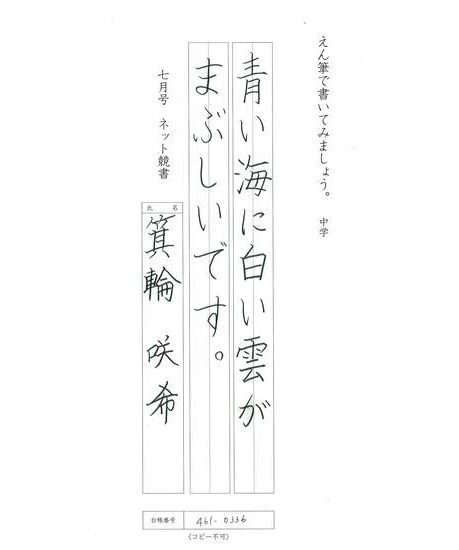 えん筆で書いてみましょう。 中学
青い海に白い雲が
まぶしいです。
七月号 ネット競書
氏名
箕輪 咲希
台帳番号 461-0336
(コピー不可)